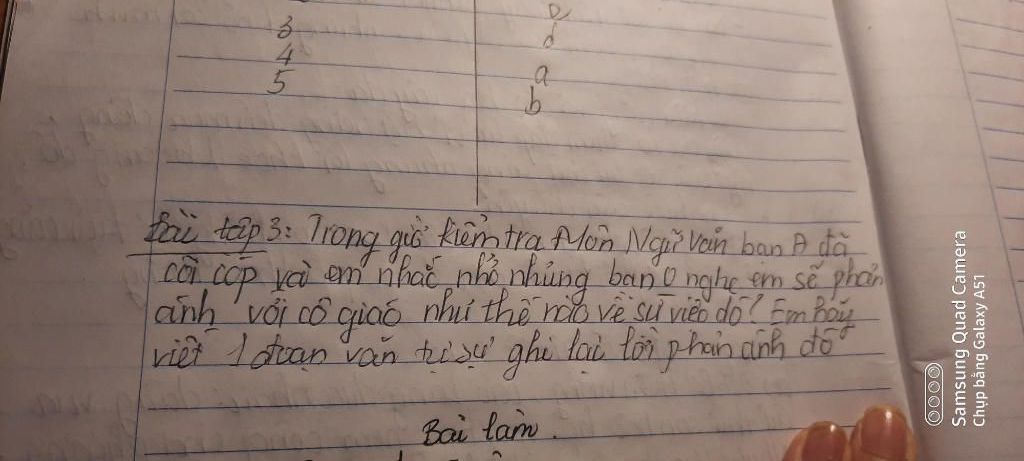 3
d
4
5
a
b
Bài tập 3: Trong giờ kiểm tra Môn Ngữ văn bạn A đã
cồi cóp và em nhắc nhỏ nhưng bạn 0 nghe em sẽ phản
ánh với cô giáo như thế nào về sự việc đó? Em hãy
viết 1 đoạn văn tự sự ghi lại lời phản ánh đó
Bài làm.
Samsung Quad Camera
Chụp bằng Galaxy A51